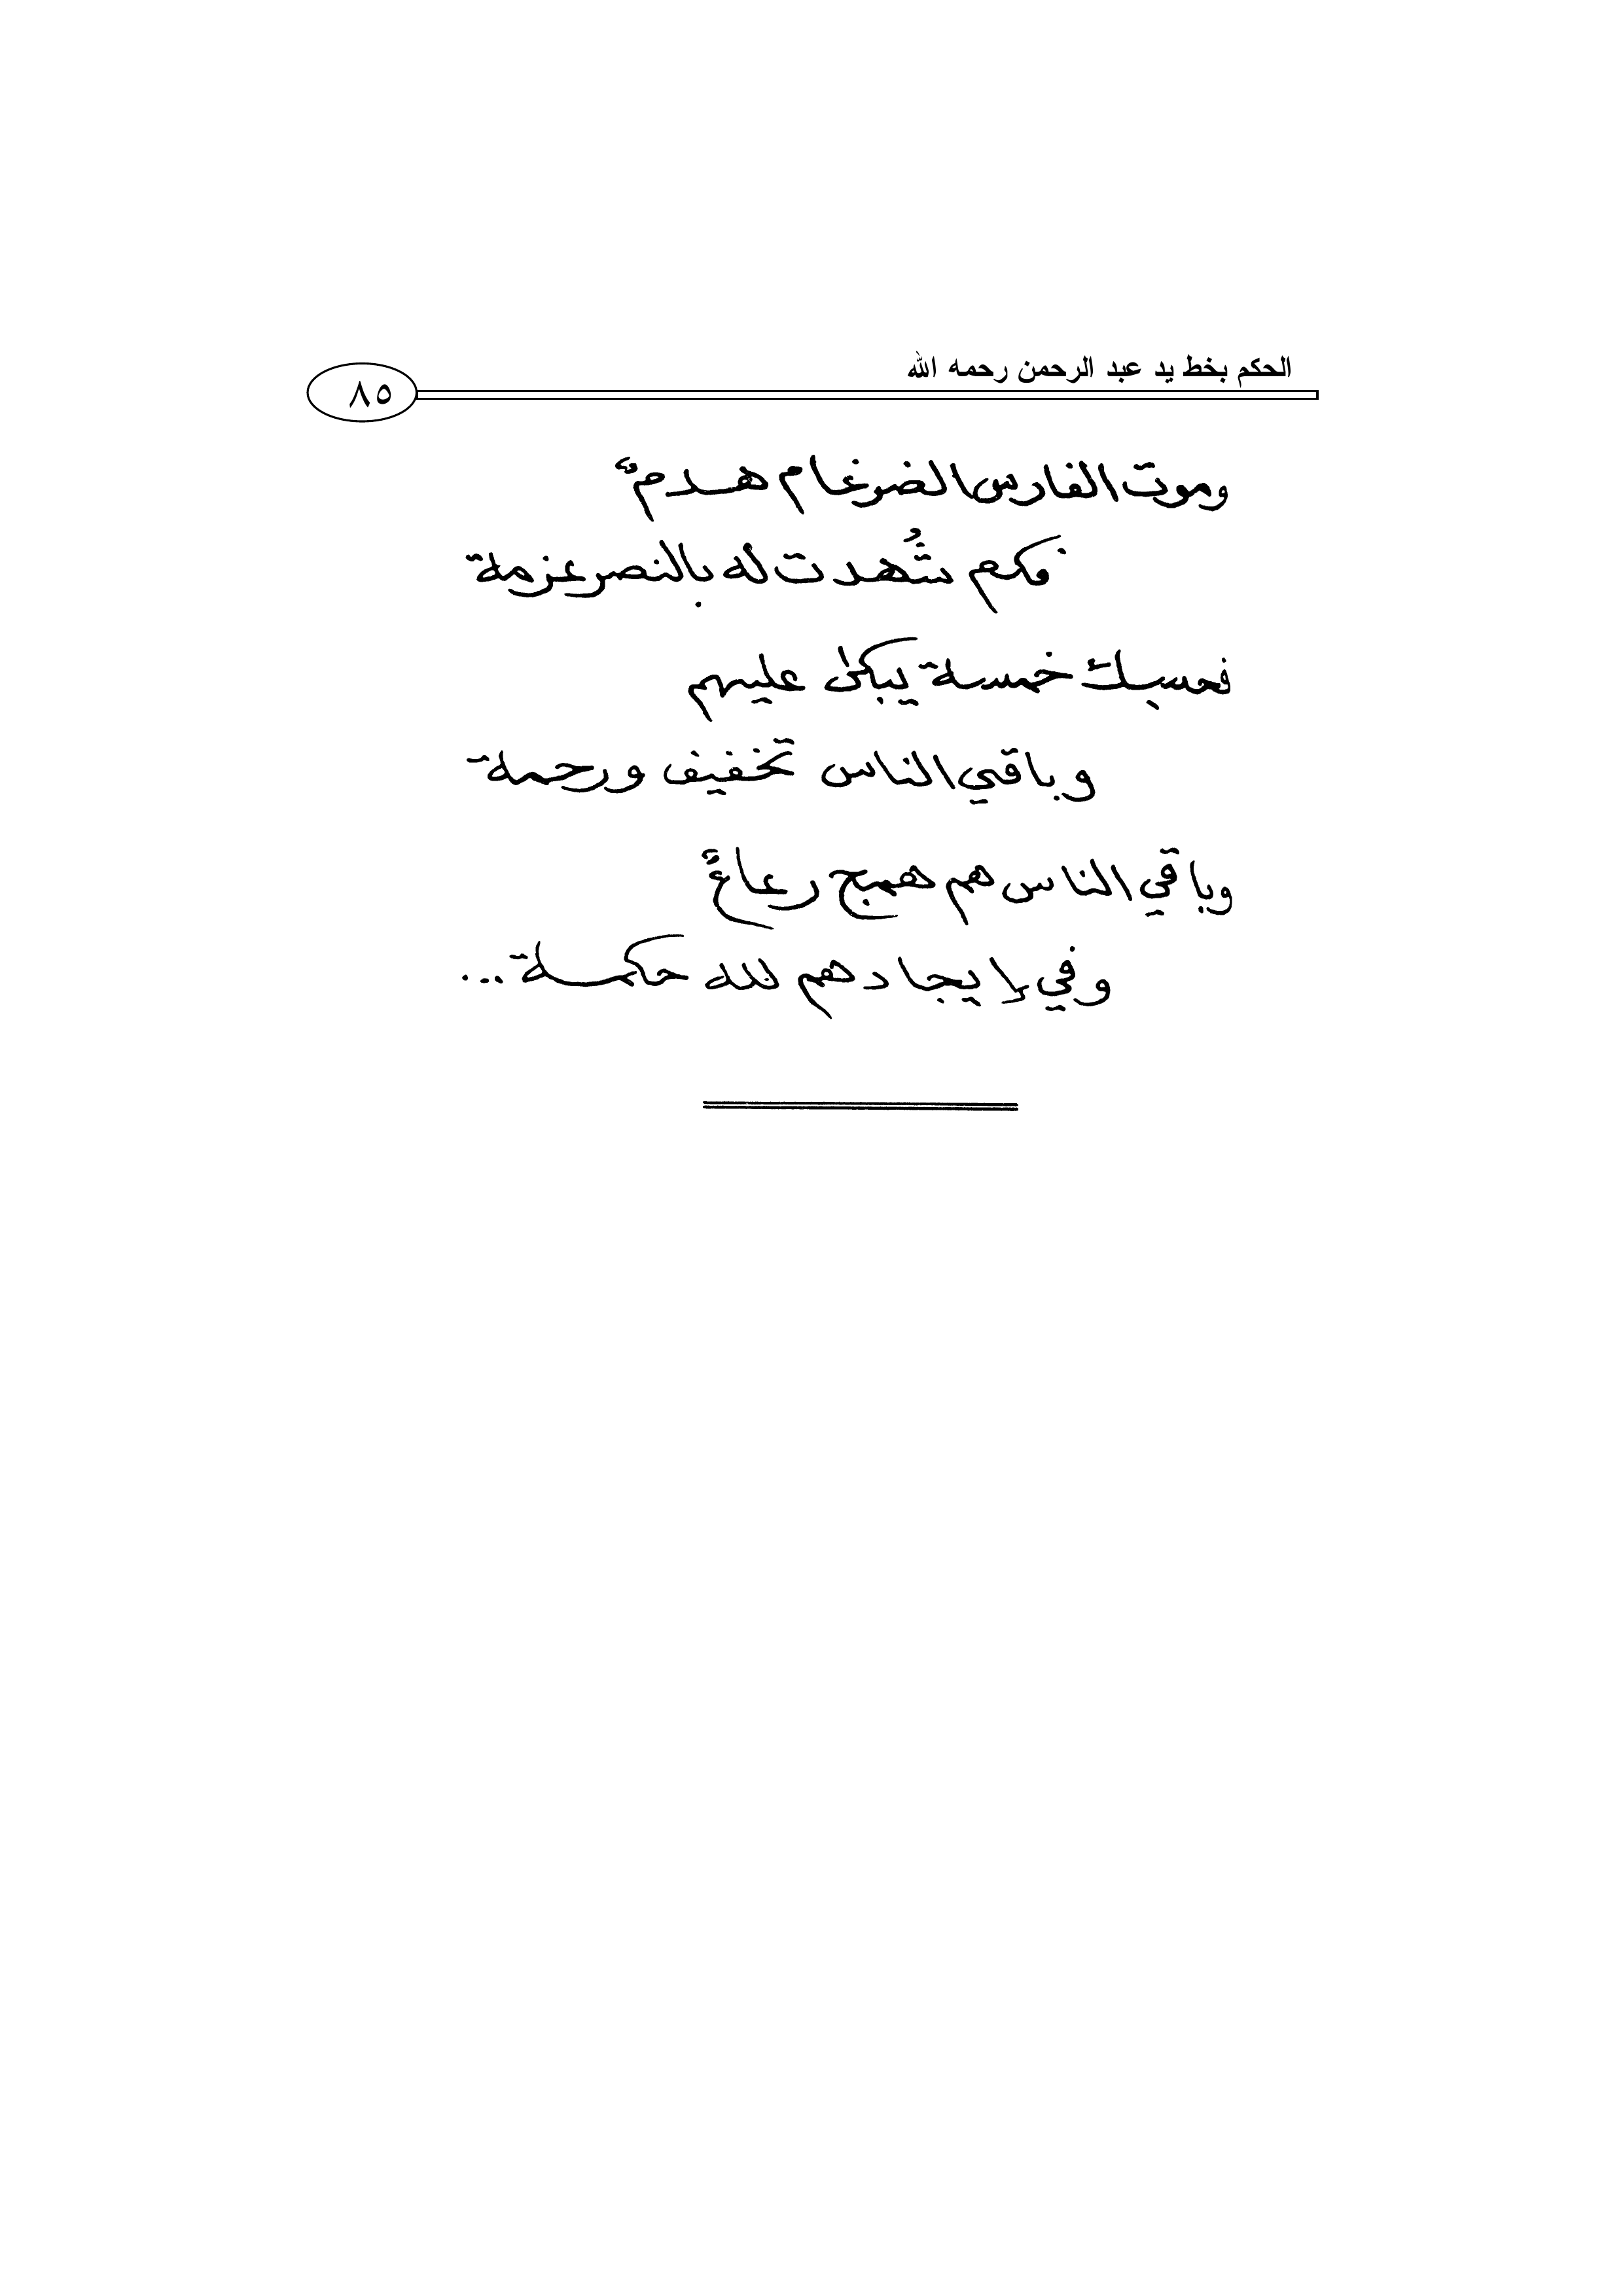 الحكم بخط يد عبد الرحمن رحمه الله
٨٥
وموت الفارس الضرغام هدمٌ
فكم شُهدت له بالنصر عزمة
فحسبك خمسة يبكى عليهم
وباقي الناس تخفيف ورحمة
وباقي الناس هم همج رعاعٌ
وفي إيجادهم لله حكمة...